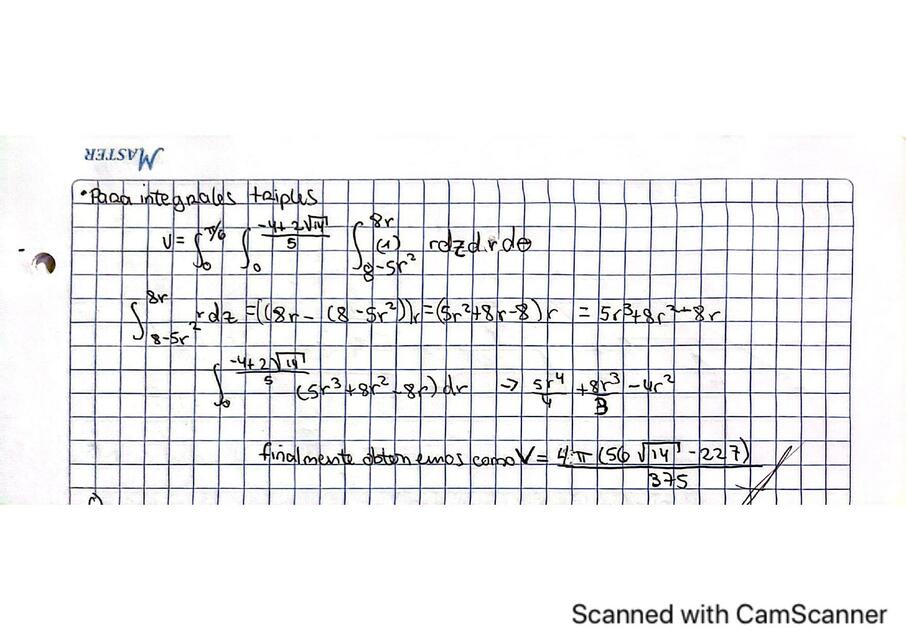 MASTER
•Para integrales triples
V= ∫₀^π/6 ∫₀^(-4+2√14)/5 ∫_8-5r²^8r (1) rdzdrdθ
∫_8-5r²^8r rdz =((8r - (8-5r²))r=(5r²+8r-8)r = 5r³+8r²-8r
∫₀^(-4+2√14)/5 (5r³+8r²-8r)dr → 5r⁴/4 +8r³/3 -4r²
finalmente obtenemos como V= 4π(56√14 -227)/375
Scanned with CamScanner